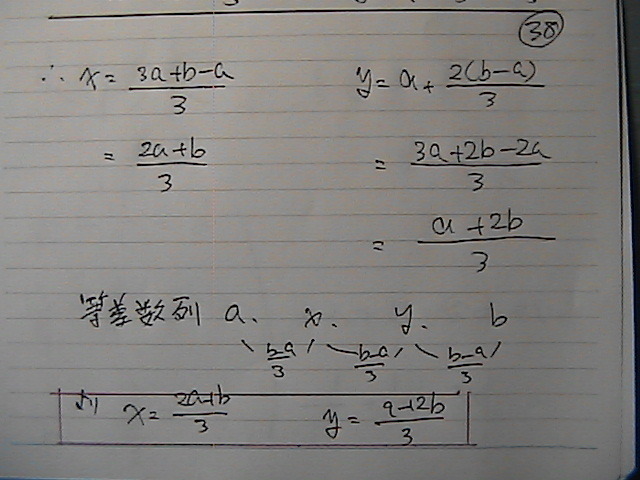 38
∴ x = (3a+b-a)/3    y = a + 2(b-a)/3
= (2a+b)/3    = (3a+2b-2a)/3
= (a+2b)/3
等差数列 a、 x、 y、 b
(b-a)/3 (b-a)/3 (b-a)/3
より x = (2a+b)/3    y = (a+2b)/3